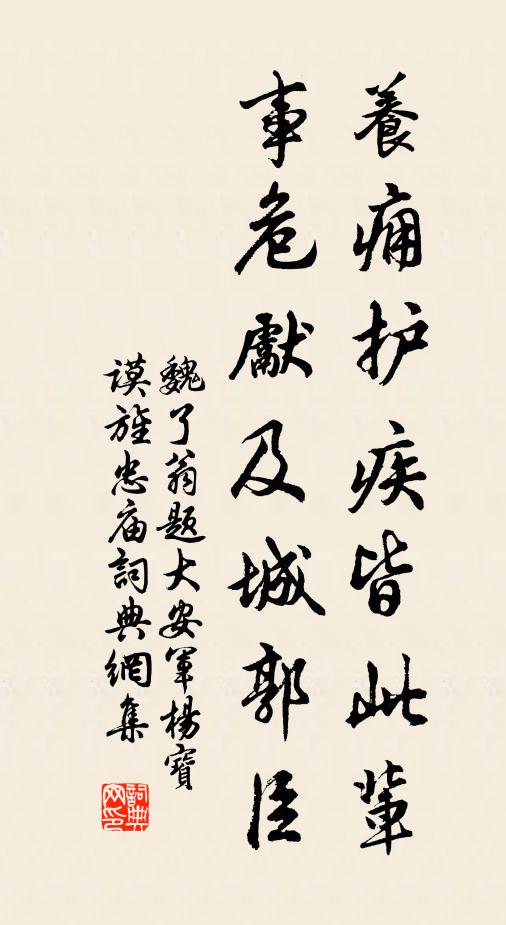 養痈护疾皆此輩
事危獻及城郭臣
魏了翁题大安軍楊寶
謨旌忠庙詞典網集
詞典网印